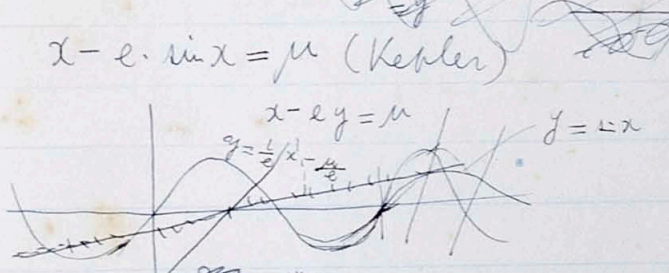 x - e · sin x = μ (Kepler)
x - ey = μ
y = 1/e x - μ/e
y = sin x